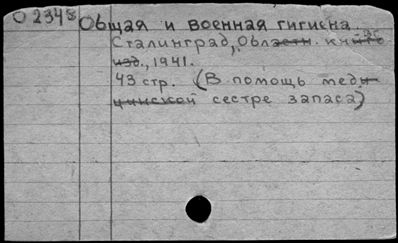 О 2348 Общая и военная гигиена.
Сталинград, Областн. книго
изд., 1941.
43 стр. (В помощь меди
цинской сестре запаса)